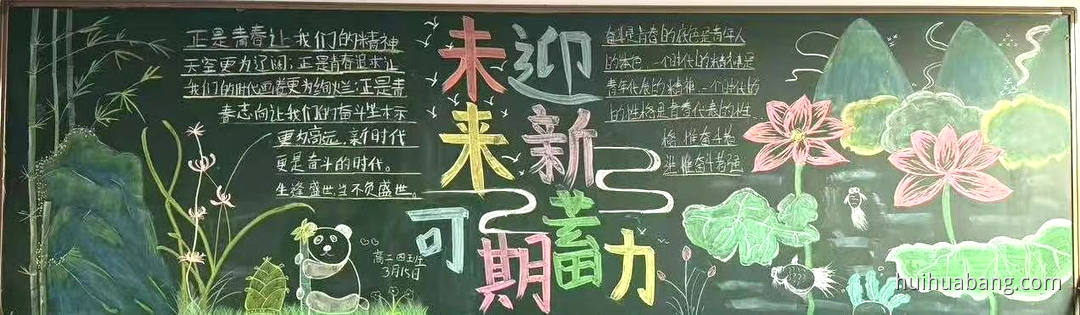 正是青春让我们的精神
天空更为辽阔;正是青春追求让
我们的时代画卷更为绚烂;正是青
春志向让我们的奋斗坐标
更为高远。新时代
更是奋斗的时代。
生逢盛世当不负盛世。
未来可期
迎新蓄力
奋斗是青春的底色是青年人
的本色一个时代的精神是
青年代表的精神一个时代的
的性格是青春代表的性
格惟奋斗者
进惟奋斗者强
高二四班
3月15日
huihuabang.com